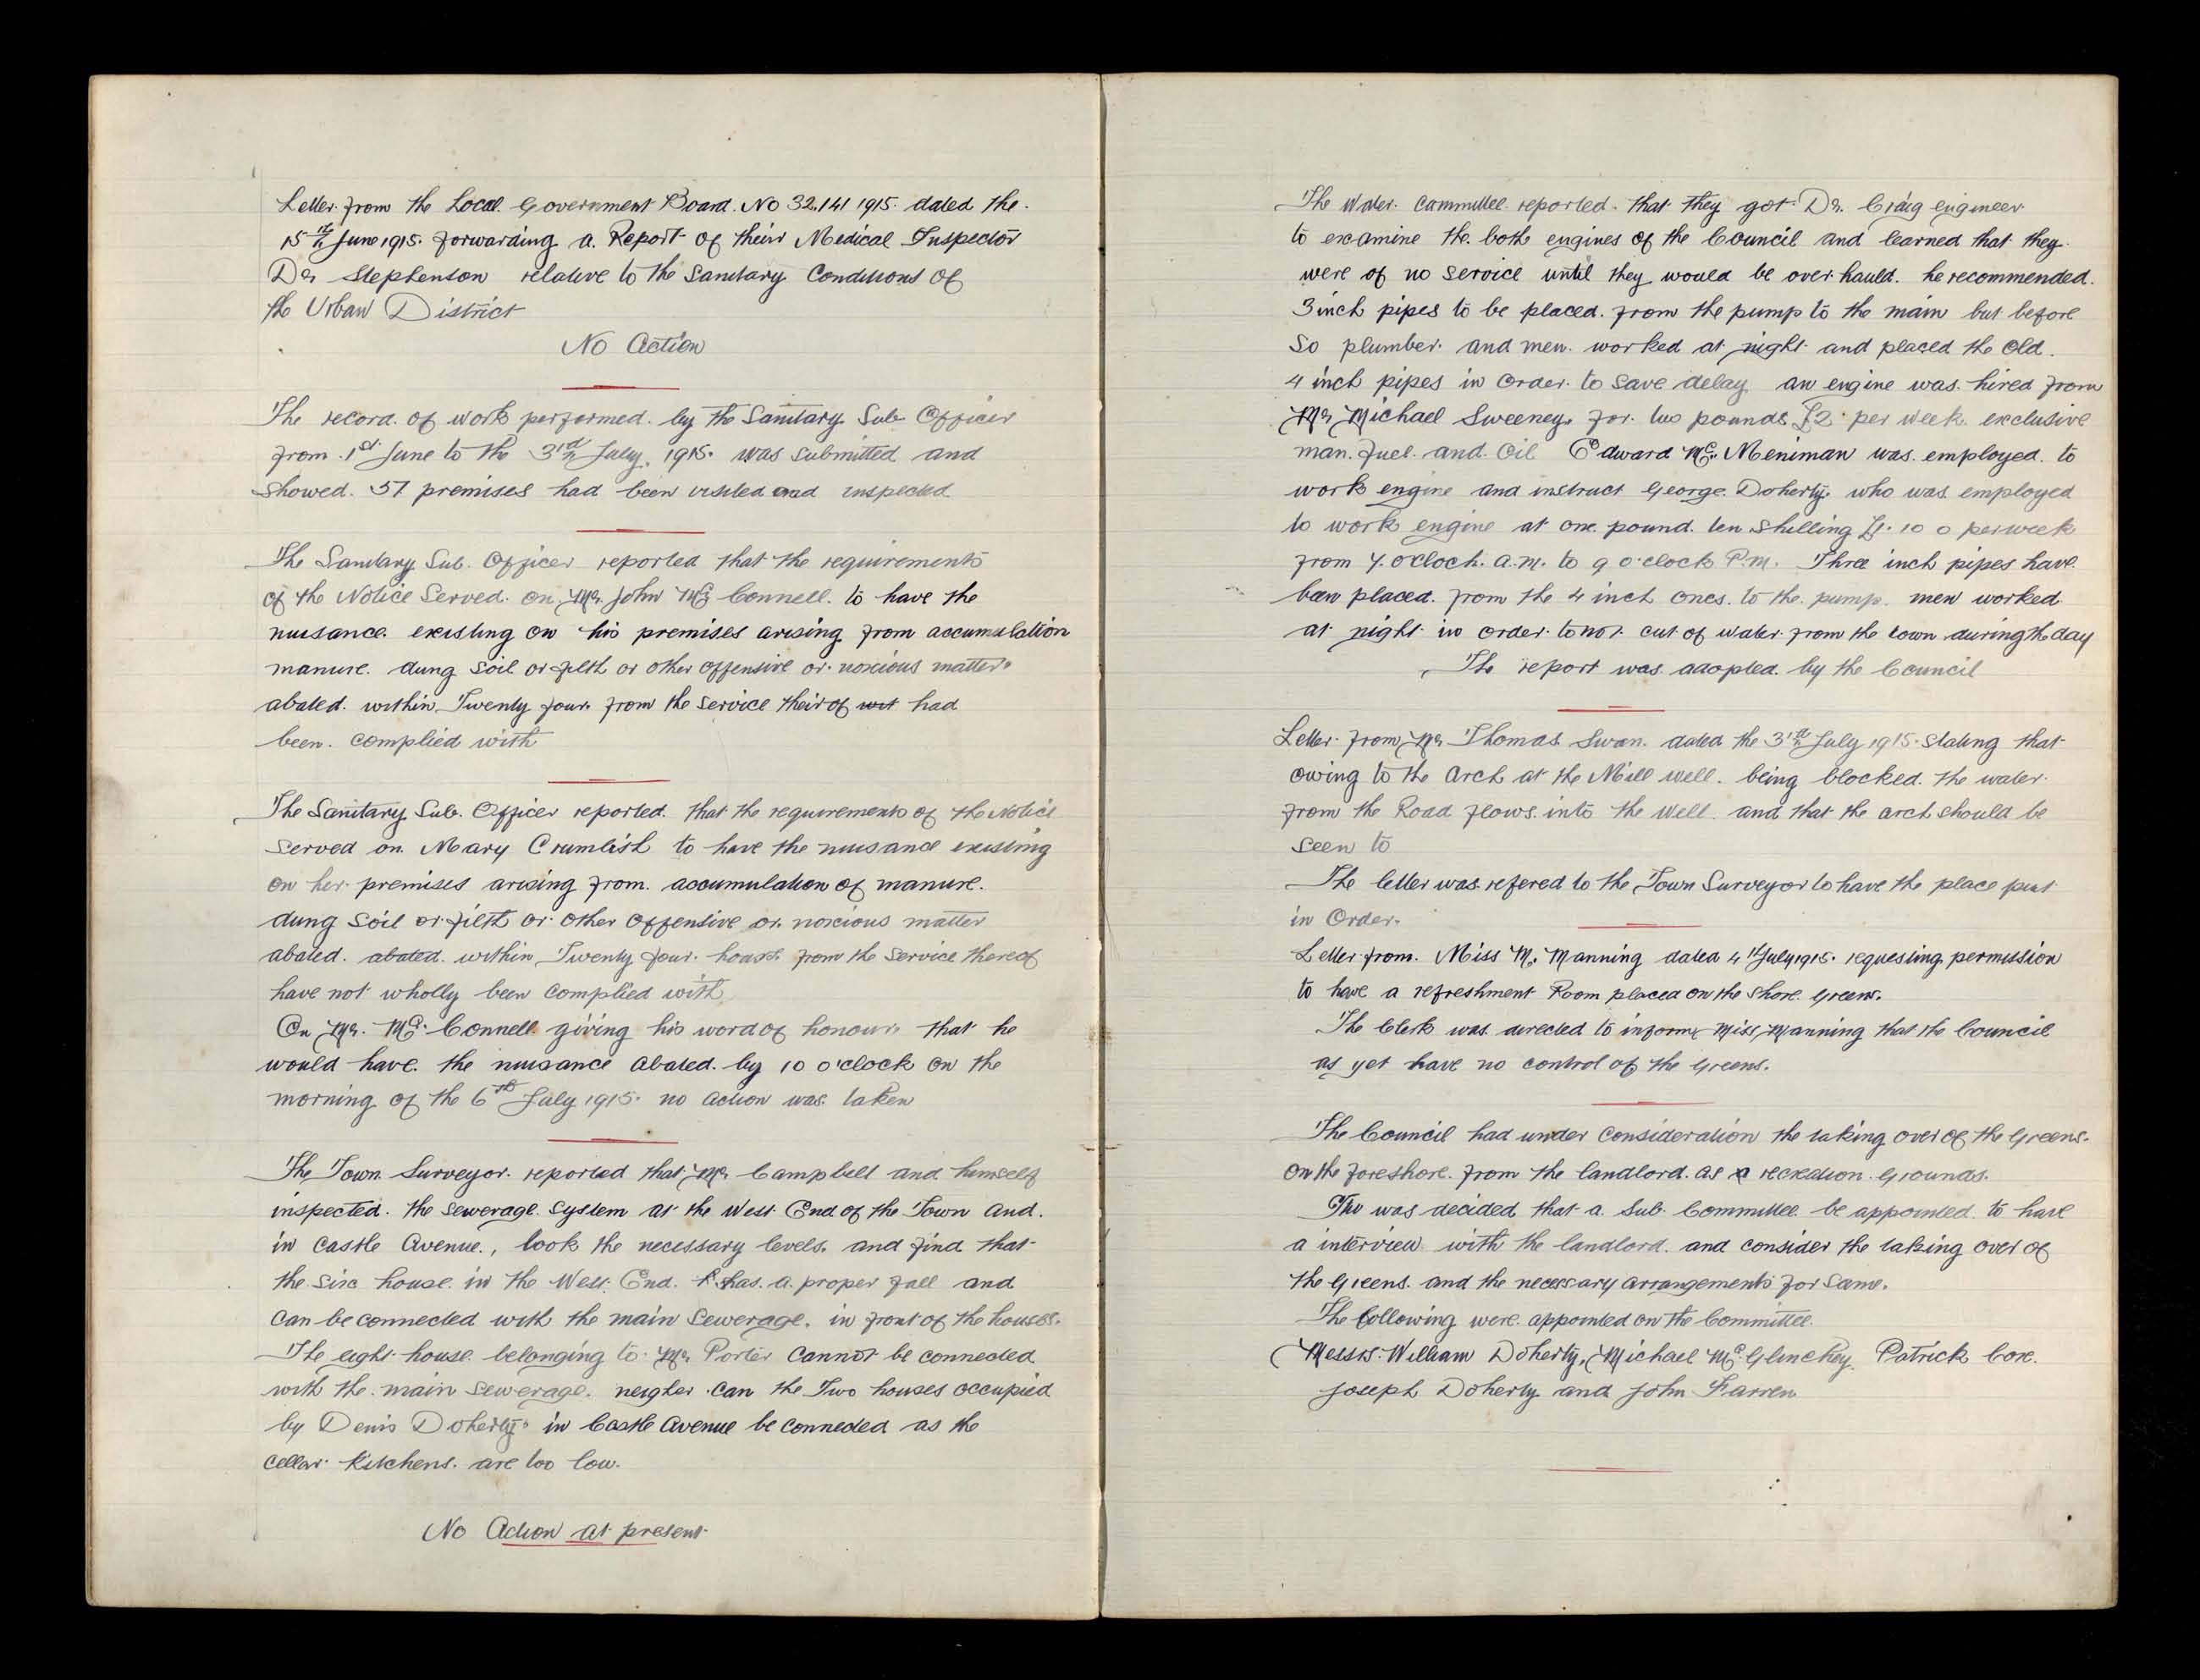 Letter from the Local Government Board. No 32,141 1915 dated the
15th June 1915. forwarding a. Report of their Medical Inspector
Dr Stephenson relative to the Sanitary Conditions of
the Urban District
No Action
The record of work performed by the Sanitary Sub Officer
from 1st June to the 3rd July, 1915. was submitted and
showed. 57 premises had been visited and inspected
The Sanitary Sub. Officer reported that the requirements
of the Notice Served on Mr. John Mc Connell. to have the
nuisance existing on his premises arising from accumulation
manure. dung soil or filth or other offensive or noxious matter
abated. within Twenty four from the service their of had
been. complied with
The Sanitary Sub. Officer reported. that the requirements of the Notice
Served on Mary Crumlish to have the nuisance existing
on her premises arising from. accumulation of manure.
dung Soil or filth or other offensive or noxious matter
abated. abated. within Twenty four hours from the service thereof
have not wholly been complied with
On Mr. Mc Connell giving his word of honour that he
would have. the nuisance abated. by 10 o'clock on the
morning of the 6th July 1915. no action was taken
The Town Surveyor. reported that Mr Campbell and himself
inspected. the sewerage system at the West End of the Town and.
in Castle Avenue., took the necessary levels. and find that
the six house in the West End. has. a proper fall and
can be connected with the main Sewerage. in front of the houses.
The eight house belonging to Mr Porter cannot be connected
with the main sewerage. neigher can the Two houses occupied
by Denis Doherty in Castle Avenue be conneded as the
cellar kitchens. are too low.
No Action at present
The Water Committee reported. that they got Dr. Craig engineer
to examine the both engines of the Council and learned that they
were of no service until they would be over hauld. he recommended.
3 inch pipes to be placed. from the pump to the main but before
So plumber and men worked at night and placed the old.
4 inch pipes in order to save delay an engine was hired from
Mr Michael Sweeney for two pounds £2 per week exclusive
man. fuel. and. Oil Edward Mc. Meniman was. employed. to
work engine and instruct George. Doherty. who was employed
to work engine at one pound ten shilling £1. 10 0 per week
from 7. o'cloch. a.m. to 9 o'clock P.m. Three inch pipes have.
been placed. from the 4 inch ones. to the pump. men worked
at night in order to not cut of water from the town during the day
The report was adopted. by the Council
Letter from Mr Thomas Swan. dated the 3rd July 1915. Stating that
owing to the arch at the Mill well. being blocked. the water
from the Road flows. into the Well. and that the arch should be
Seen to
The letter was refered to the Town Surveyor to have the place put
in Order.
Letter from. Miss M. Manning dated 4th July 1915. requesting permission
to have a refreshment Room placed on the shore Green.
The Clerk was directed to inform Miss Manning that the Council
as yet have no control of the Greens.
The Council had under consideration the taking over of the Greens.
on the foreshore. from the landlord. as a recreation Grounds.
was decided that a Sub. Committee be appointed to have
a interview with the landlord. and consider the taking over of
the Greens. and the necessary arrangements for same.
The following were. appointed on the Committee.
Messrs. William Doherty, Michael Mc Glinchey Patrick Core.
Joseph Doherty and John Farren